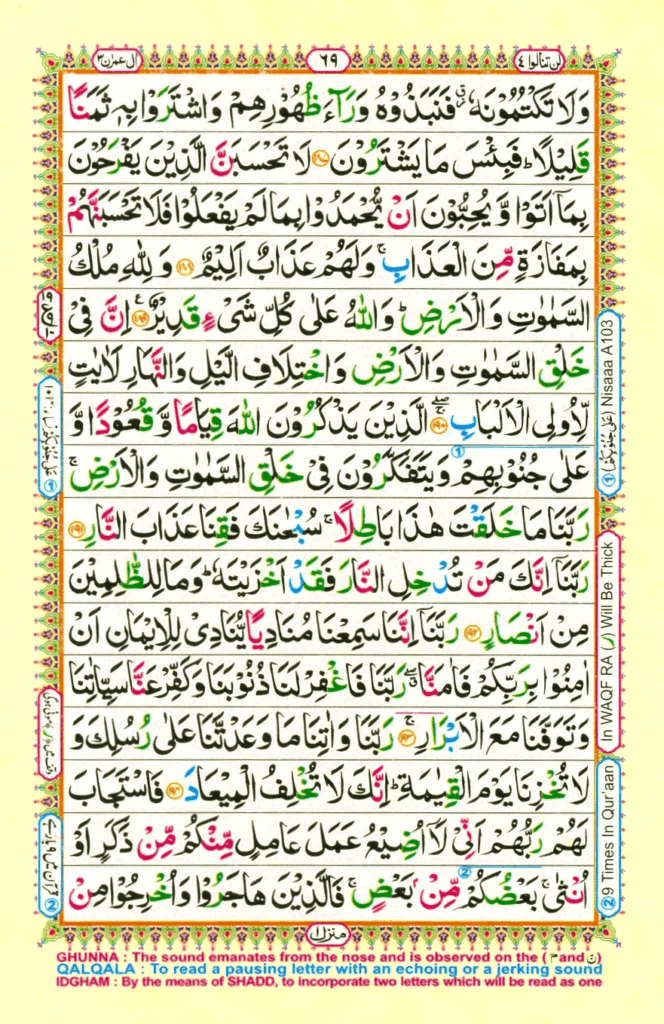 لن تنالوا ٤
٦٩
ال عمرٰن ٣
وَلَا تَكْتُمُوْنَهٗ ۫ فَنَبَذُوْهُ وَرَآءَ ظُهُوْرِهِمْ وَاشْتَرَوْا بِهٖ ثَمَنًا
قَلِيْلًا ؕ فَبِئْسَ مَا يَشْتَرُوْنَ ﴿۱۸۷﴾ لَا تَحْسَبَنَّ الَّذِيْنَ يَفْرَحُوْنَ
بِمَاۤ اَتَوْا وَّ يُحِبُّوْنَ اَنْ يُّحْمَدُوْا بِمَا لَمْ يَفْعَلُوْا فَلَا تَحْسَبَنَّهُمْ
بِمَفَازَةٍ مِّنَ الْعَذَابِ ۚ وَلَهُمْ عَذَابٌ اَلِيْمٌ ﴿۱۸۸﴾ وَلِلّٰهِ مُلْكُ
السَّمٰوٰتِ وَالْاَرْضِ ؕ وَاللّٰهُ عَلٰى كُلِّ شَیْءٍ قَدِيْرٌ ﴿۱۸۹﴾ اِنَّ فِیْ
خَلْقِ السَّمٰوٰتِ وَالْاَرْضِ وَاخْتِلَافِ الَّيْلِ وَالنَّهَارِ لَاٰيٰتٍ
لِّاُولِی الْاَلْبَابِ ﴿۱۹۰﴾ الَّذِيْنَ يَذْكُرُوْنَ اللّٰهَ قِيَامًا وَّ قُعُوْدًا وَّ
عَلٰى جُنُوْبِهِمْ وَيَتَفَكَّرُوْنَ فِیْ خَلْقِ السَّمٰوٰتِ وَالْاَرْضِ ۚ
رَبَّنَا مَا خَلَقْتَ هٰذَا بَاطِلًا ۚ سُبْحٰنَكَ فَقِنَا عَذَابَ النَّارِ ﴿۱۹۱﴾
رَبَّنَاۤ اِنَّكَ مَنْ تُدْخِلِ النَّارَ فَقَدْ اَخْزَيْتَهٗ ؕ وَمَا لِلظّٰلِمِيْنَ
مِنْ اَنْصَارٍ ﴿۱۹۲﴾ رَبَّنَاۤ اِنَّنَا سَمِعْنَا مُنَادِيًا يُّنَادِیْ لِلْاِيْمَانِ اَنْ
اٰمِنُوْا بِرَبِّكُمْ فَاٰمَنَّا ۖ رَبَّنَا فَاغْفِرْ لَنَا ذُنُوْبَنَا وَكَفِّرْ عَنَّا سَيِّاٰتِنَا
وَتَوَفَّنَا مَعَ الْاَبْرَارِ ﴿۱۹۳﴾ رَبَّنَا وَاٰتِنَا مَا وَعَدْتَّنَا عَلٰى رُسُلِكَ وَ
لَا تُخْزِنَا يَوْمَ الْقِيٰمَةِ ؕ اِنَّكَ لَا تُخْلِفُ الْمِيْعَادَ ﴿۱۹۴﴾ فَاسْتَجَابَ
لَهُمْ رَبُّهُمْ اَنِّیْ لَاۤ اُضِيْعُ عَمَلَ عَامِلٍ مِّنْكُمْ مِّنْ ذَكَرٍ اَوْ
اُنْثٰى ۚ بَعْضُكُمْ مِّنْۢ بَعْضٍ ۚ فَالَّذِيْنَ هَاجَرُوْا وَاُخْرِجُوْا مِنْ
① (عَلٰى جُنُوْبِكُمْ) Nisaaa A103
In WAQF RA (ر) Will Be Thick
② 9 Times In Qur'aan
وقف میں (ر) موٹی ہوگی
② قرآن میں ۹ بار ہے
منزل ١
GHUNNA : The sound emanates from the nose and is observed on the (م and ن)
QALQALA : To read a pausing letter with an echoing or a jerking sound
IDGHAM : By the means of SHADD, to incorporate two letters which will be read as one